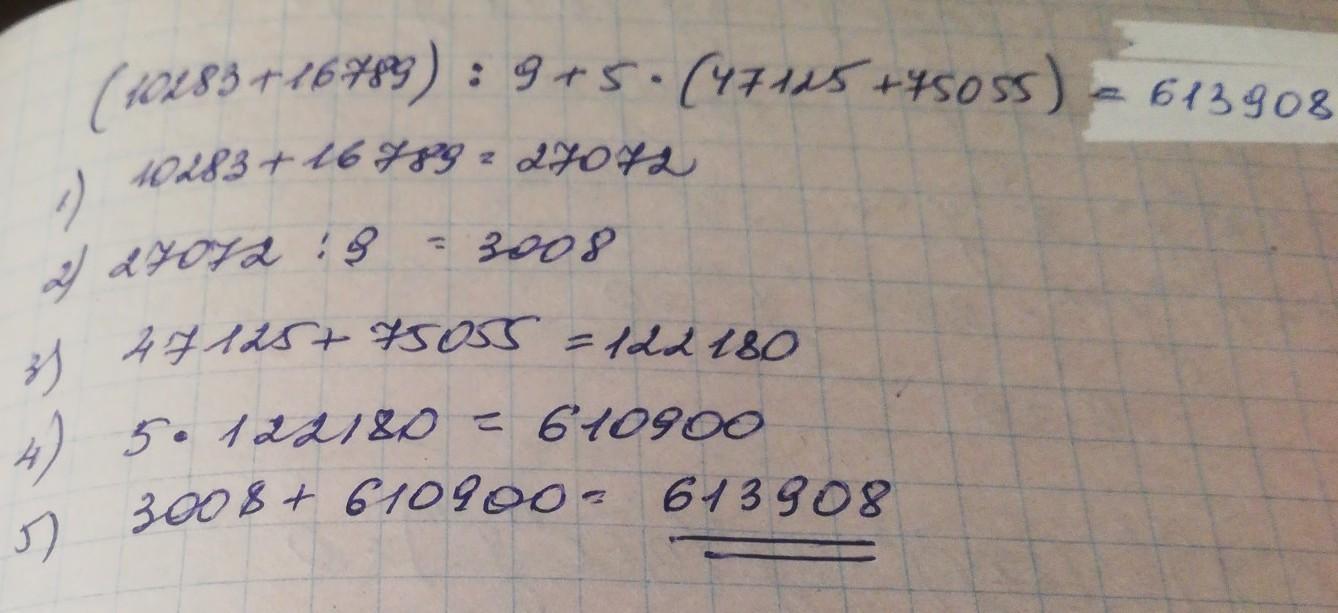 (10283+16789) : 9+5·(47125+75055) = 613908
1) 10283+16789=27072
2) 27072 :9 = 3008
3) 47125+75055 =122180
4) 5·122180 = 610900
5) 3008+ 610900= 613908